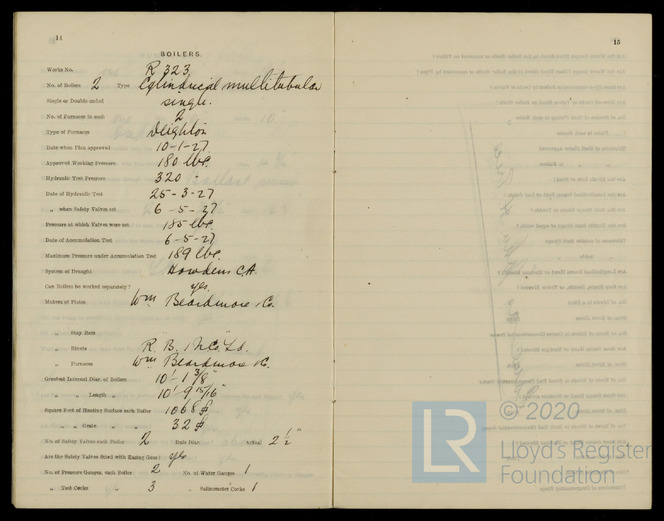 14
BOILERS.
Works No. R 323
No. of Boilers 2 Type Cylindrical multitubular
Single or Double-ended single.
No. of Furnaces in each 2
Type of Furnaces Deighton
Date when Plan approved 10-1-27
Approved Working Pressure 180 lbs.
Hydraulic Test Pressure 320 "
Date of Hydraulic Test 25-3-27
„ when Safety Valves set 6-5-27
Pressure at which Valves were set 185 lbs.
Date of Accumulation Test 6-5-27
Maximum Pressure under Accumulation Test 189 lbs.
System of Draught Howdens C.A.
Can Boilers be worked separately? yes.
Makers of Plates Wm Beardmore & Co.
„ Stay Bars "
„ Rivets R. B. & N Co. Ld.
„ Furnaces Wm Beardmore & C.
Greatest Internal Diam. of Boilers 10' 1 3/8"
„ „ Length „ 10' 9 15/16"
Square Feet of Heating Surface each Boiler 1068
„ „ Grate „ „ 32
No. of Safety Valves each Boiler 2 Rule Diam. Actual 2 ½"
Are the Safety Valves fitted with Easing Gear? yes
No. of Pressure Gauges, each Boiler 2 No. of Water Gauges 1
„ Test Cocks „ 3 „ Salinometer Cocks 1
15
LR
© 2020
Lloyd's Register
Foundation